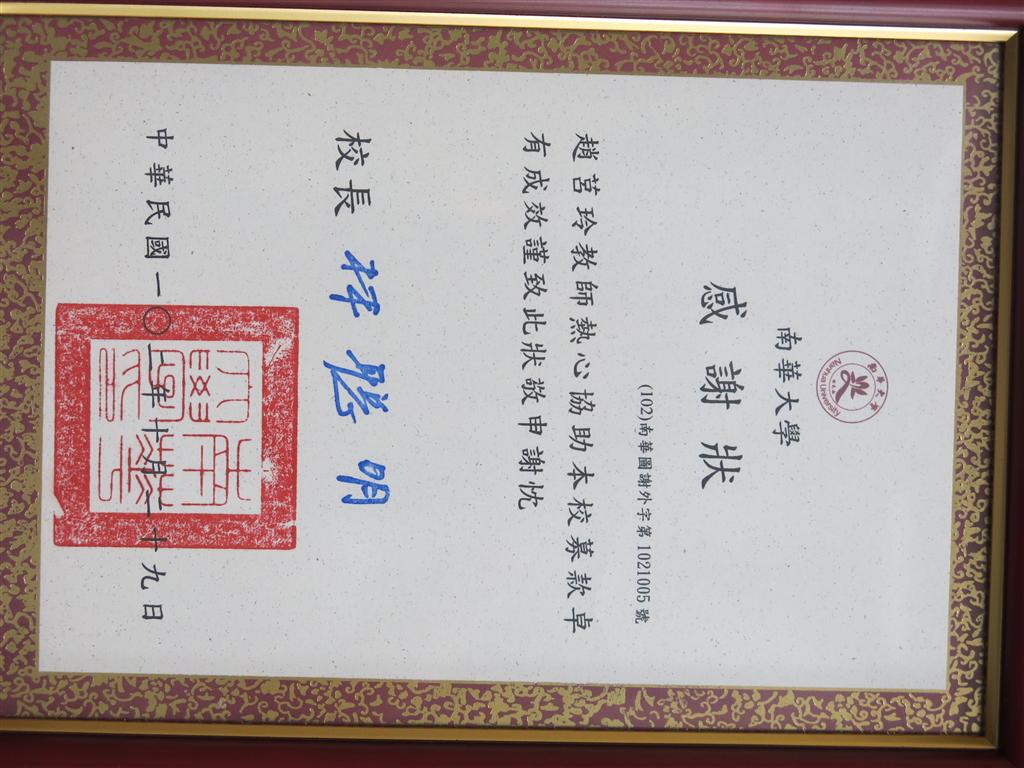 南華大學
Nanhua University
南華大學
感謝狀
(102)南華圖謝外字第1021005號
趙莒玲教師熱心協助本校募款卓
有成效謹致此狀敬申謝忱
校長 林聰明
中華民國一〇二年十月二十九日